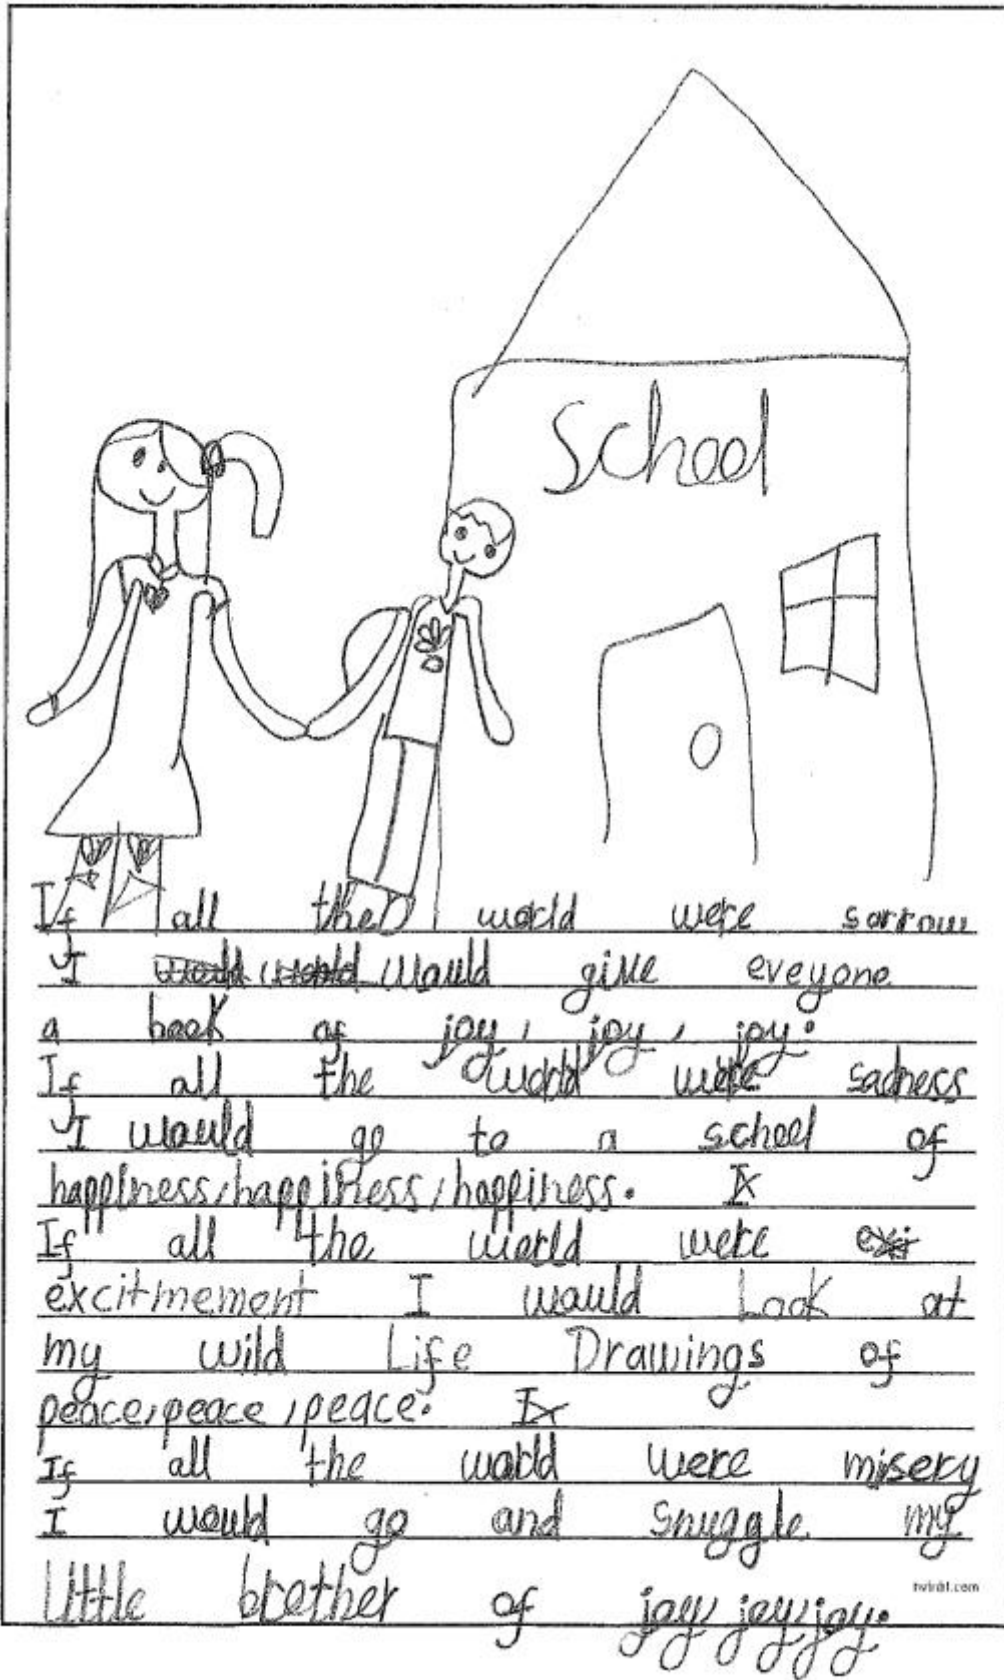 School
If all the world were sorrow
I would would would give eveyone
a book of joy, joy, joy.
If all the world were sadness
I would go to a school of
happiness, happiness, happiness. I
If all the world were exi
excitmement I would Look at
my wild Life Drawings of
peace, peace, peace. I
If all the world were misery
I would go and snuggle my
little brother of joy, joy, joy.